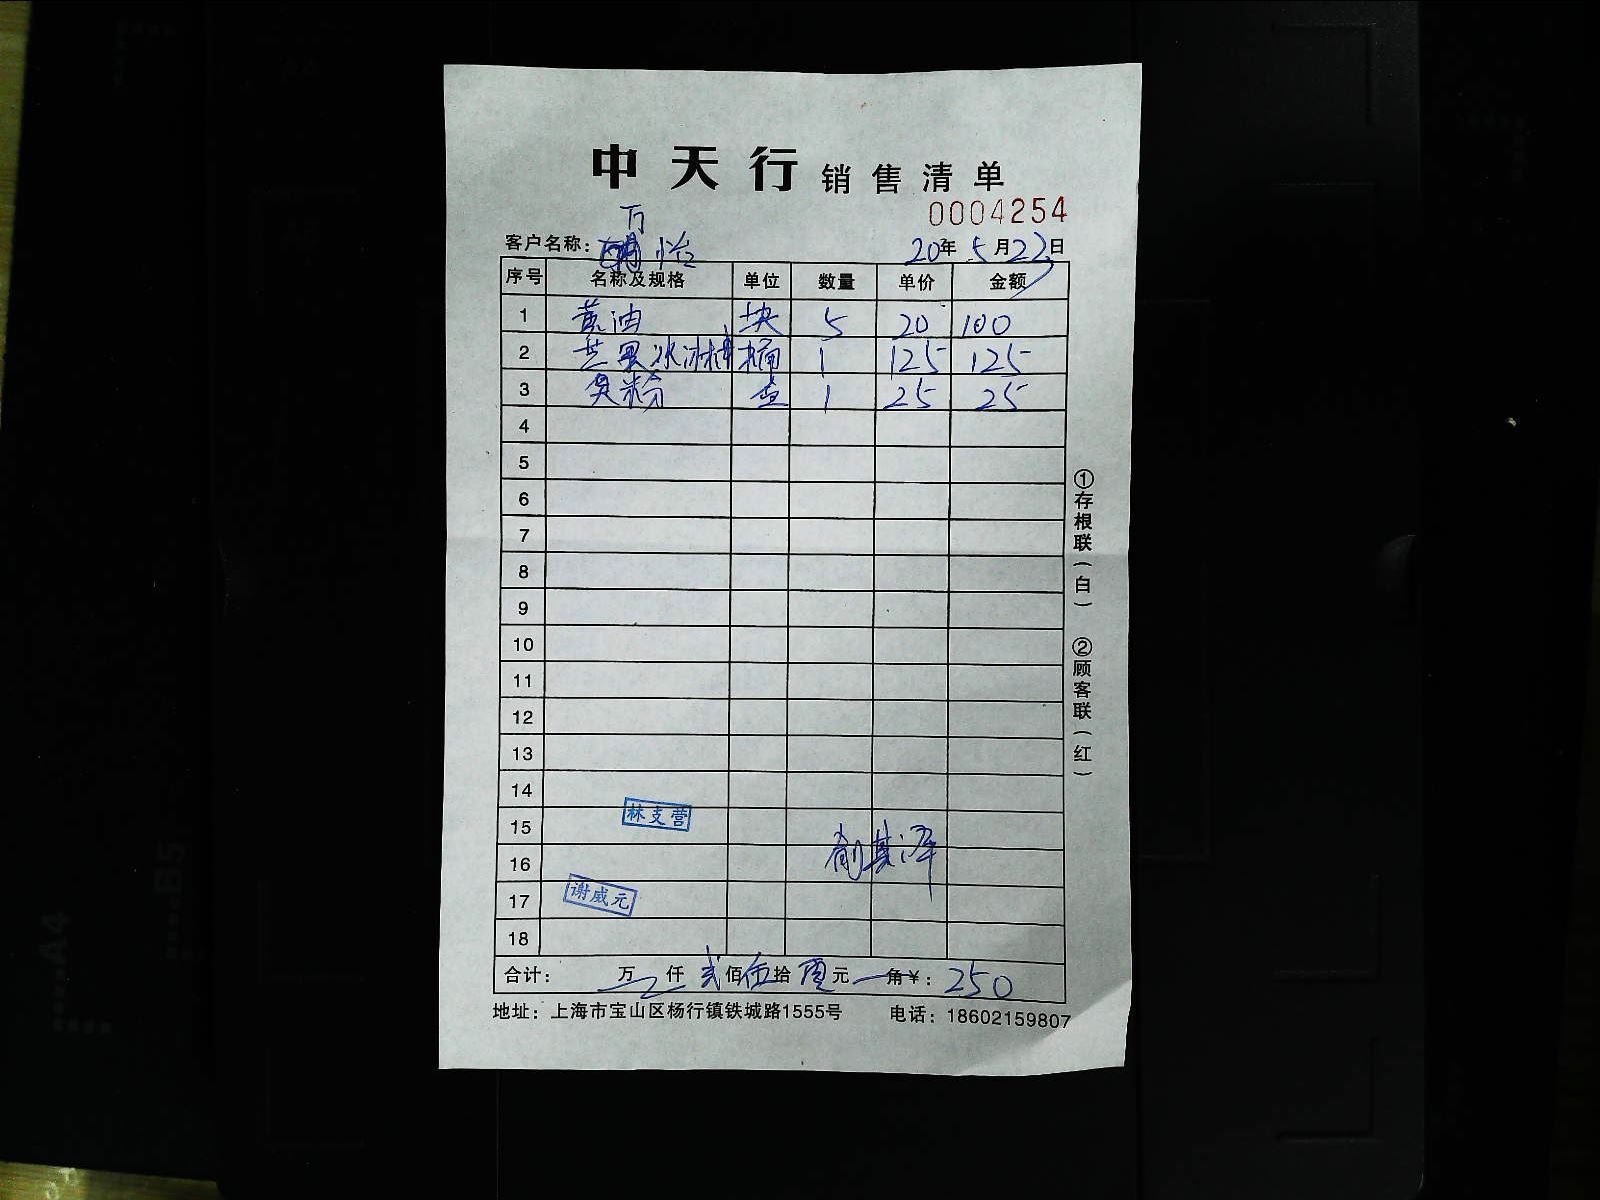 中天行 销售清单
0004254
万
客户名称： 怡 20年5月23日
序号 名称及规格 单位 数量 单价 金额
1 黄油 块 5 20 100
2 芒果冰淇淋 桶 1 125 125
3 臭粉 盒 1 25 25
4
5
6
7
8
9
10
11
12
13
14
15 林支营
16
17 谢威元
18
合计： 万 仟 贰佰伍拾零元 角￥：250
地址：上海市宝山区杨行镇铁城路1555号 电话：18602159807
①存根联（白） ②顾客联（红）
A4
B5